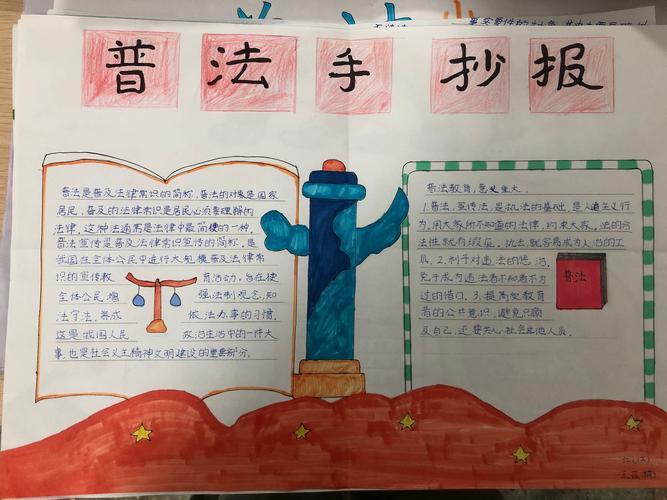 普法手抄报
普法是普及法律常识的简称,普法的对象是国家
居民,普及的法律常识是居民必须要理解的
法律,这种法通常是法律中最简楼的一种。
普法宣传是普及法律常识宣传的简称,是
我国在全体公民中进行大规模普及法律常
识的宣传教育活动,旨在使
全体公民,增强法制观念,知
法守法,养成依法办事的习惯,
这是我国人民政治生活中的一件大
事,也是社会主义精神文明建设的重要部分。
普法教育,意义重大
1.普法,宣传法,是执法的基础,是人道主义行
为,用大家所不知道的法律,约束大家,法的合
法性就有瑕疵。执法,就容易成为人治的工
具,2.利于对违法的惩治,
免于成为违法者不知者不为
过的借口,3.提高受教育
者的公共意识,避免只顾
及自己,还要关心社会其他人员。
普法